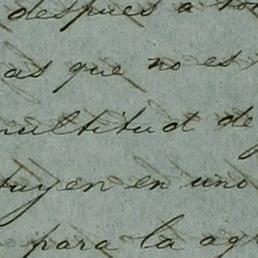 despues a
as que no es
multitud de
tuyen en uno
para la agr